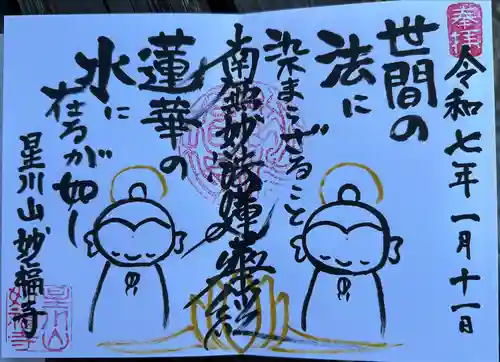 奉拝
令和七年一月十一日
世間の
法に
染まらざること
南無妙法蓮華経
蓮華の
水に
在るが如し
星川山妙福寺